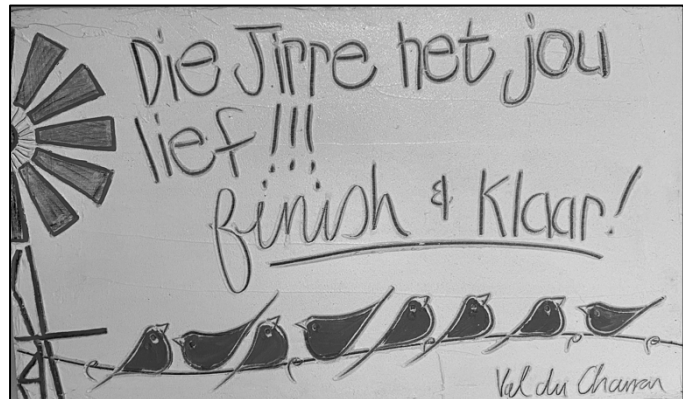 Die Jirre het jou
lief!!!
finish & Klaar!
Val du Charron